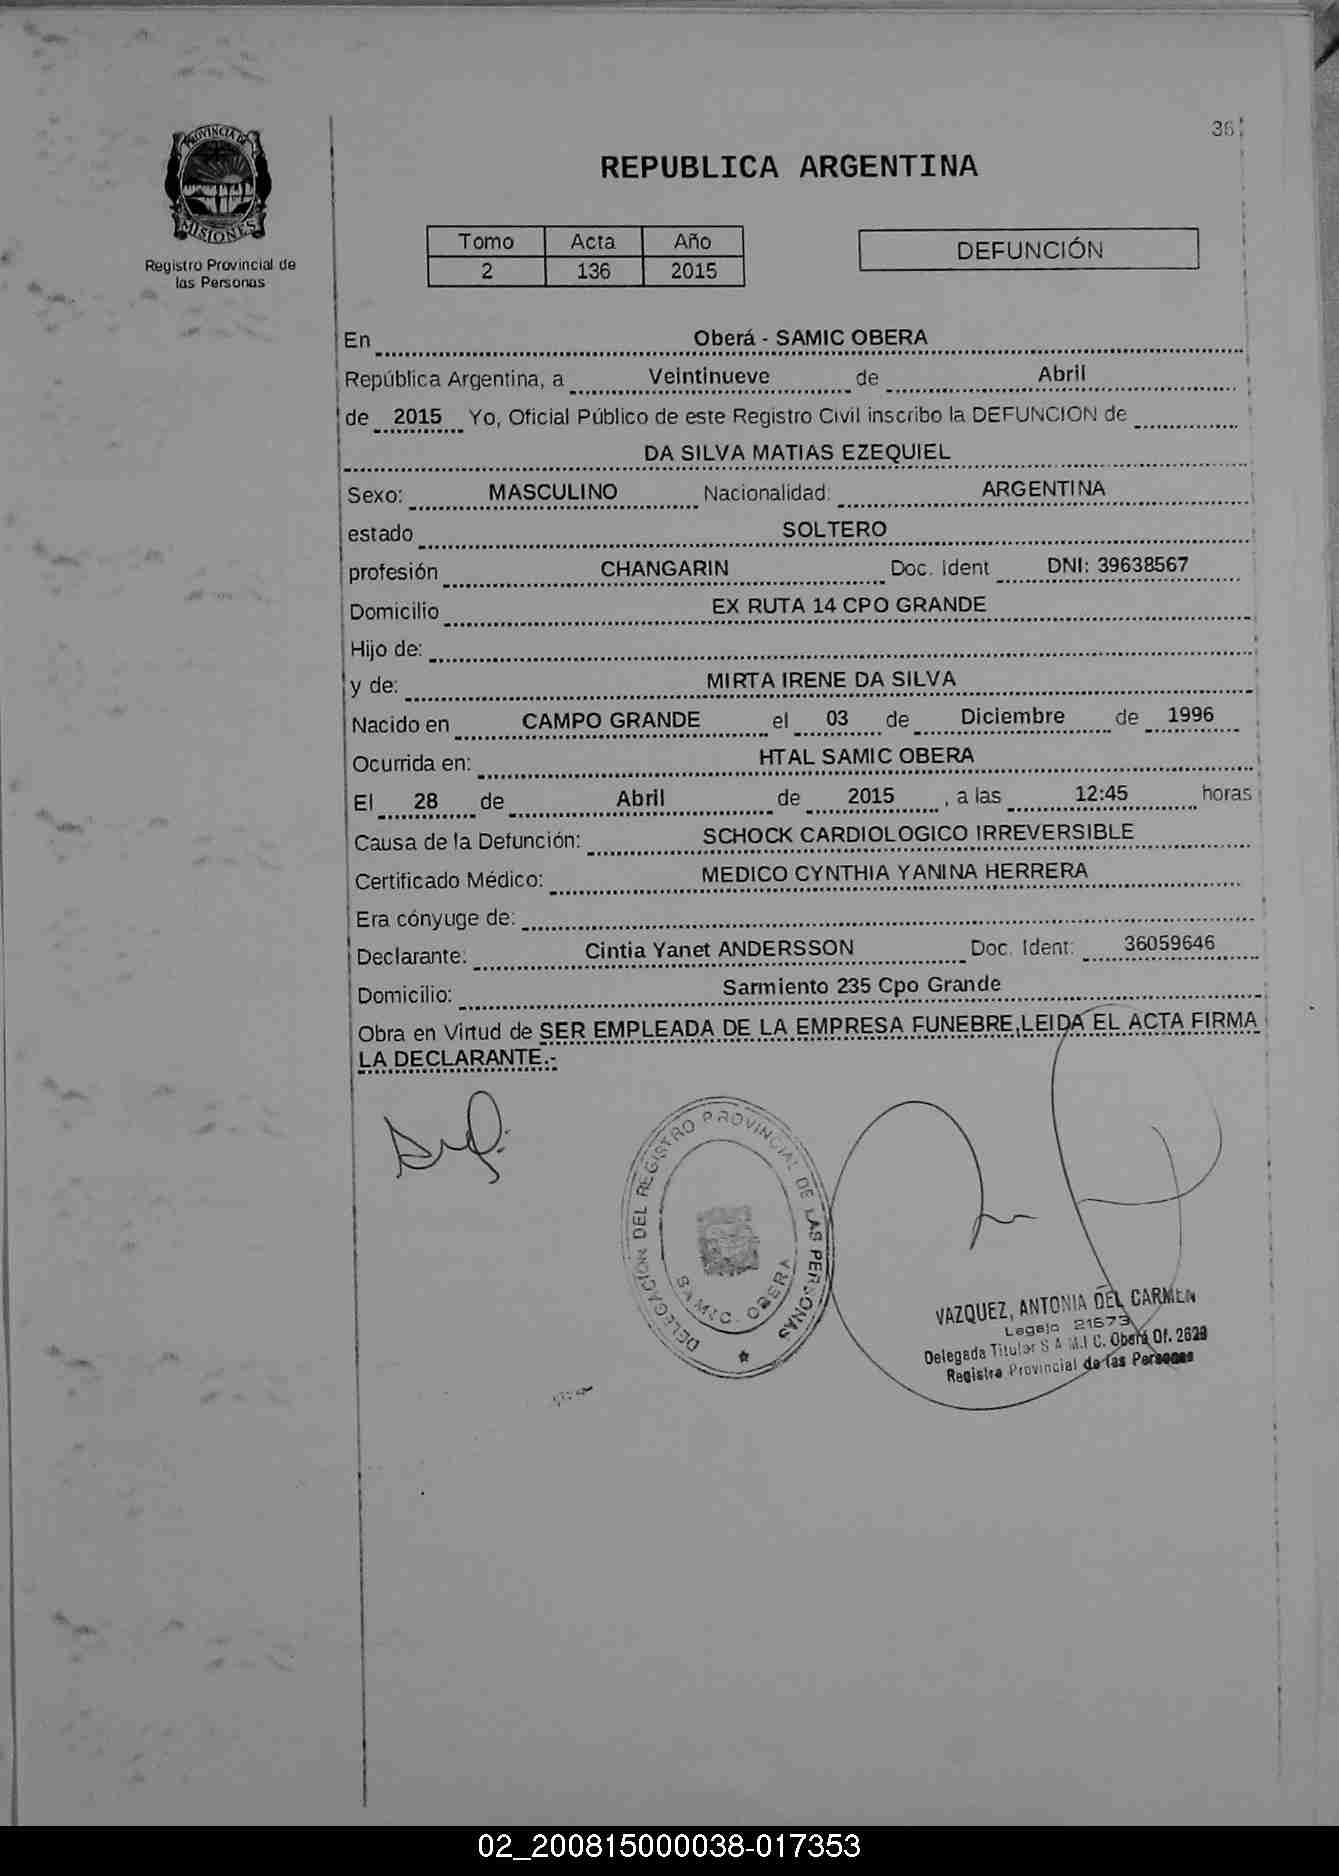 36
PROVINCIA DE
MISIONES
Registro Provincial de
las Personas
REPUBLICA ARGENTINA
Tomo Acta Año
2 136 2015
DEFUNCIÓN
En Oberá - SAMIC OBERA
República Argentina, a Veintinueve de Abril
de 2015 Yo, Oficial Público de este Registro Civil inscribo la DEFUNCION de
DA SILVA MATIAS EZEQUIEL
Sexo: MASCULINO Nacionalidad: ARGENTINA
estado SOLTERO
profesión CHANGARIN Doc. Ident DNI: 39638567
Domicilio EX RUTA 14 CPO GRANDE
Hijo de:
y de: MIRTA IRENE DA SILVA
Nacido en CAMPO GRANDE el 03 de Diciembre de 1996
Ocurrida en: HTAL SAMIC OBERA
El 28 de Abril de 2015 , a las 12:45 horas
Causa de la Defunción: SCHOCK CARDIOLOGICO IRREVERSIBLE
Certificado Médico: MEDICO CYNTHIA YANINA HERRERA
Era cónyuge de:
Declarante: Cintia Yanet ANDERSSON Doc. Ident: 36059646
Domicilio: Sarmiento 235 Cpo Grande
Obra en Virtud de SER EMPLEADA DE LA EMPRESA FUNEBRE,LEIDA EL ACTA FIRMA
LA DECLARANTE.-
DELEGACION DEL REGISTRO PROVINCIAL DE LAS PERSONAS
S.A.M.I.C. OBERA
VAZQUEZ, ANTONIA DEL CARMEN
Legajo 21573
Delegada Titular S.A.M.I.C. Oberá Of. 2629
Registro Provincial de las Personas
02_200815000038-017353